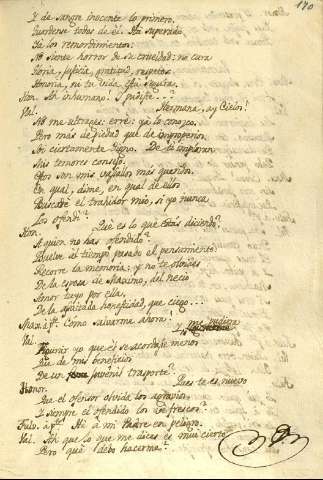 170
Y de sangre inocente lo primero.
Guardense todos de él: Ha superado
Ya los remordimientos:
No siente horror de su crueldad: no cura
Gloria, justicia, gratitud, respetos.
Honoria, ni tu vida está segura.
Hon. Ah inhumano! Y pudiste . . .
Val. Hermana, ay Cielos!
No me ultrages: erré: ya lo conozco.
Pero más de piedad que de improperios
Soy ciertamente digno. De lo
Mis temores consejo.
Estos son mis vasallos más queridos.
En qual, dime, en qual de ellos
Buscaré el trahidor mio, si yo nunca
Los ofendí?
Hon. Que es lo que estás diciendo?
A quien no has ofendido?
Vuelve al tiempo pasado el pensamiento:
Recorre la memoria; y no te olvides
De la esposa de Maximo, del necio
Amor tuyo por ella,
De la honestidad, que ciego . . .
Max. ap.te Como salvarme ahora!
Val. Y me
Figurar yo que él se acordase menor
Que de mis beneficios
De un juvenil trasporte?
Honor. Pues te es nuevo
Que el ofensor olvida los agravios,
Y siempre el ofendido los ve frescos?
Fulv. ap.te Ai à mi Padre en peligro.
Val. Ah que lo que me dices es mui cierto.
Pero què debo hacerme?